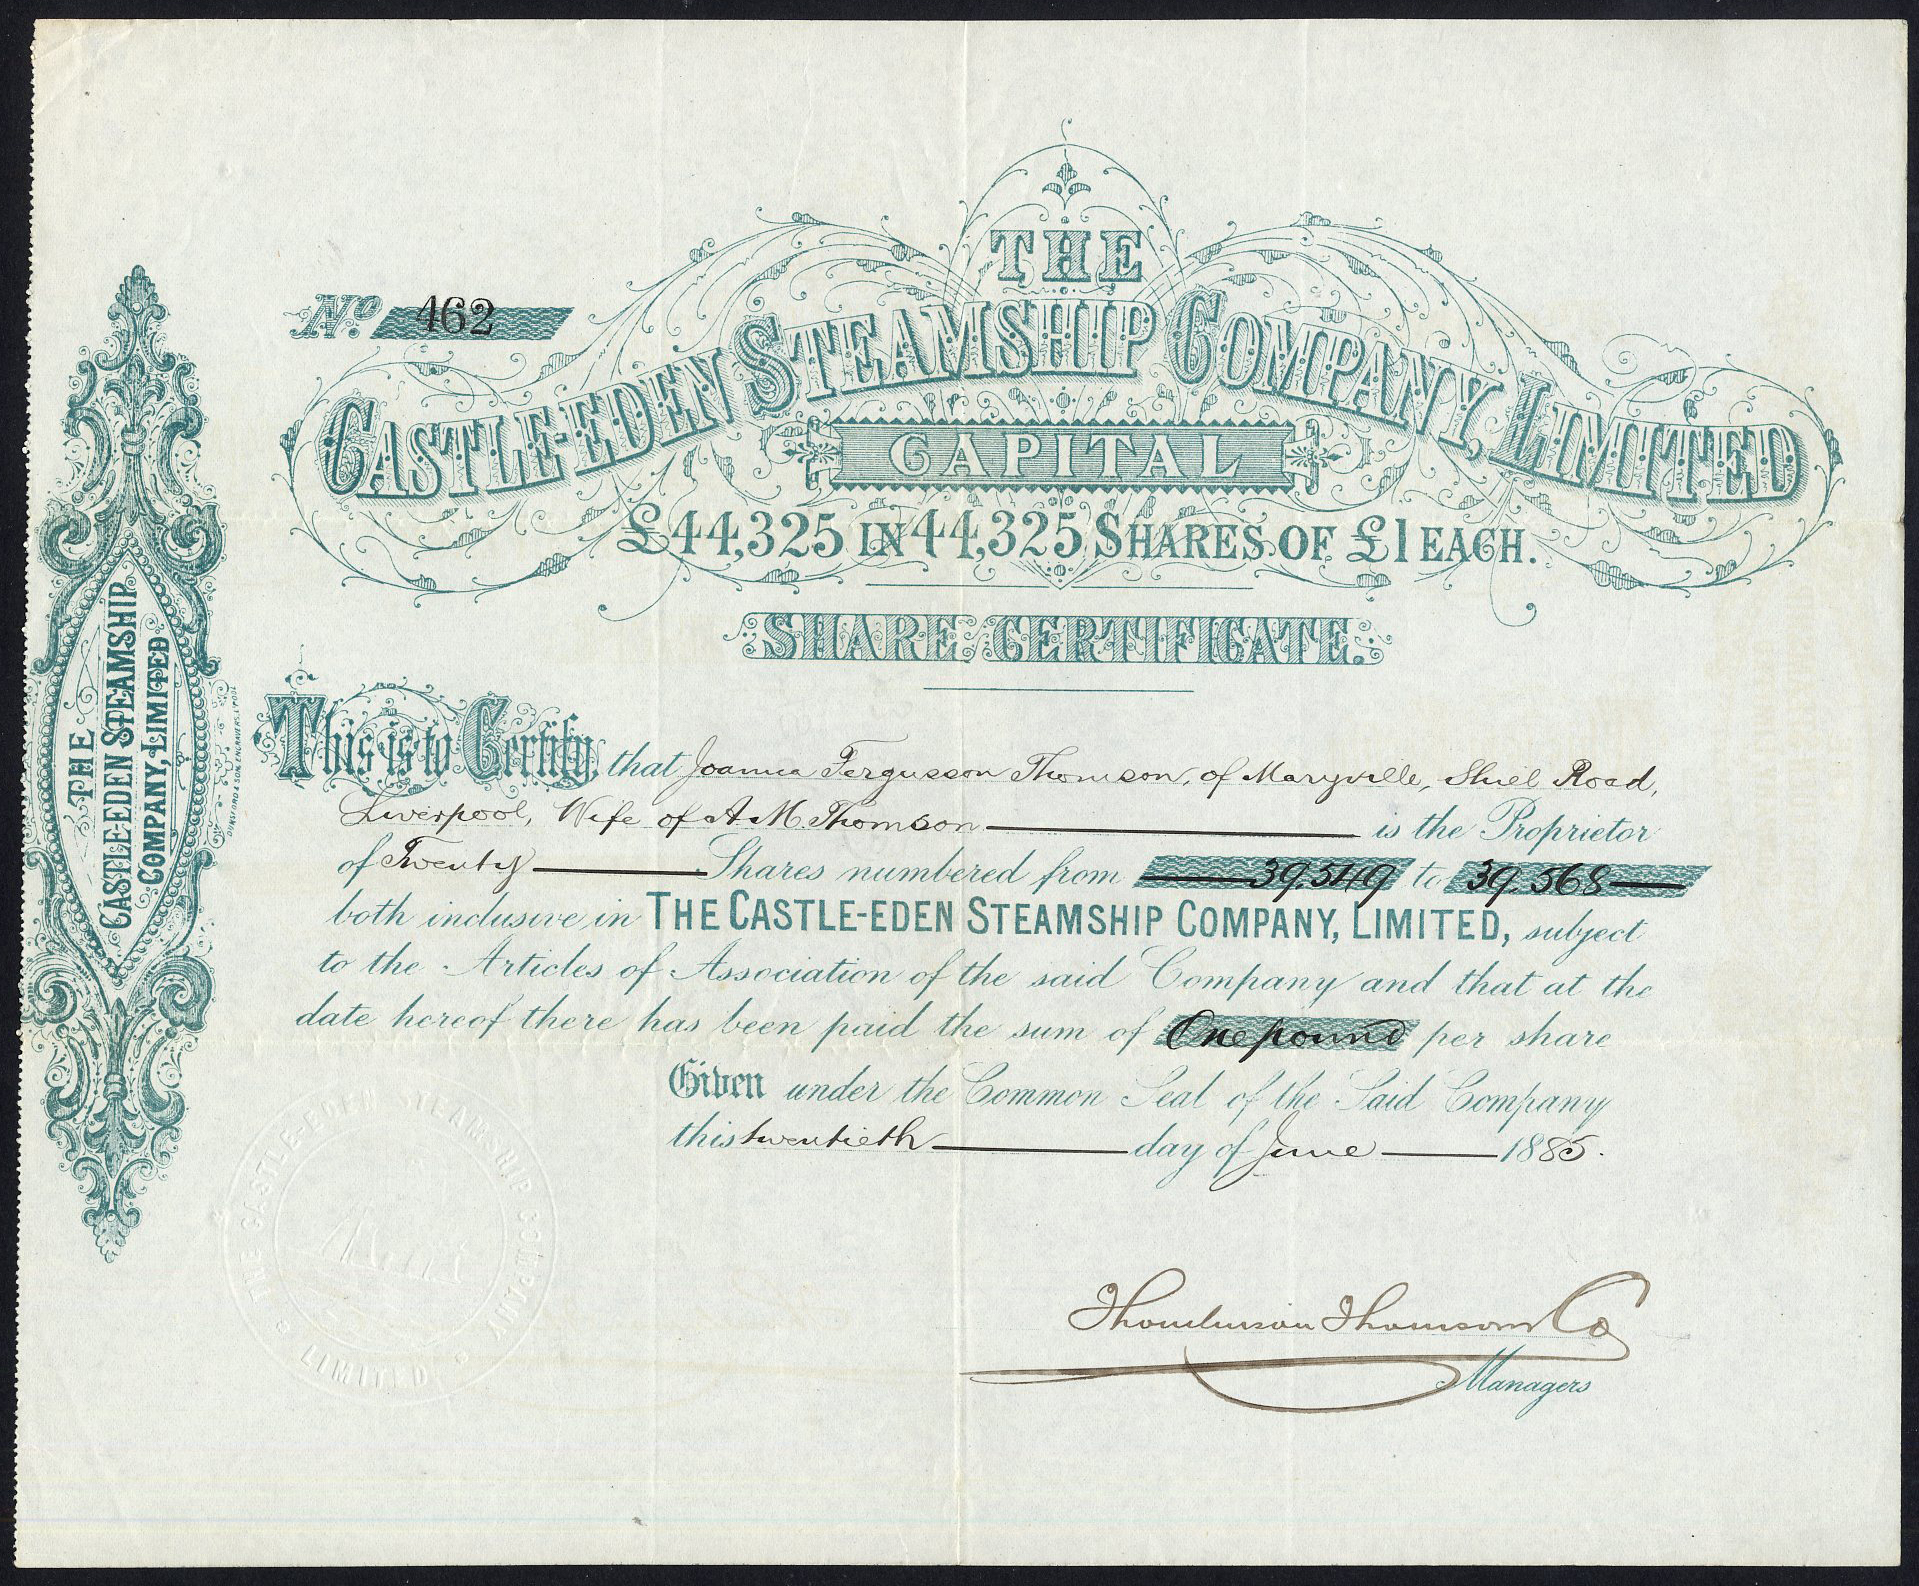 THE
CASTLE-EDEN STEAMSHIP COMPANY, LIMITED
No. 462
CAPITAL
£44,325 IN 44,325 SHARES OF £1 EACH.
SHARE CERTIFICATE.
This is to Certify, that Joanna Fergusson Thomson, of Maryville, Shiel Road,
Liverpool, Wife of A M Thomson is the Proprietor
of Twenty Shares numbered from 39.549 to 39.568
both inclusive in THE CASTLE-EDEN STEAMSHIP COMPANY, LIMITED, subject
to the Articles of Association of the said Company and that at the
date hereof there has been paid the sum of One pound per share
Given under the Common Seal of the Said Company
this twentieth day of June 1885.
Thomlinson Thomson & Co
Managers
THE
CASTLE-EDEN STEAMSHIP
COMPANY, LIMITED
THE CASTLE-EDEN STEAMSHIP COMPANY
LIMITED